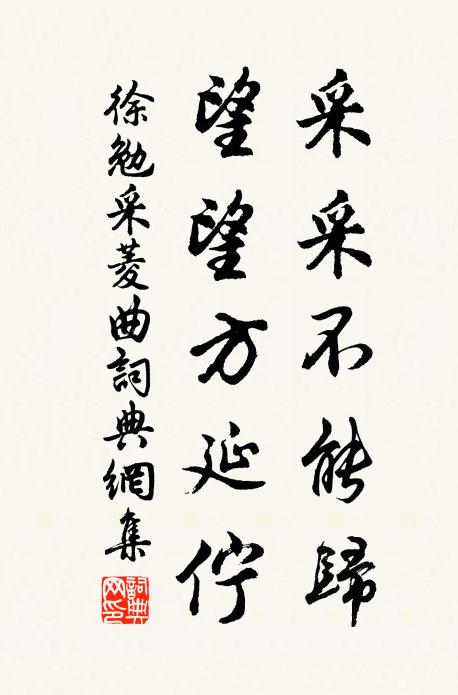 采采不能歸
望望方延佇
徐勉采菱曲詞典網集
詞典網印